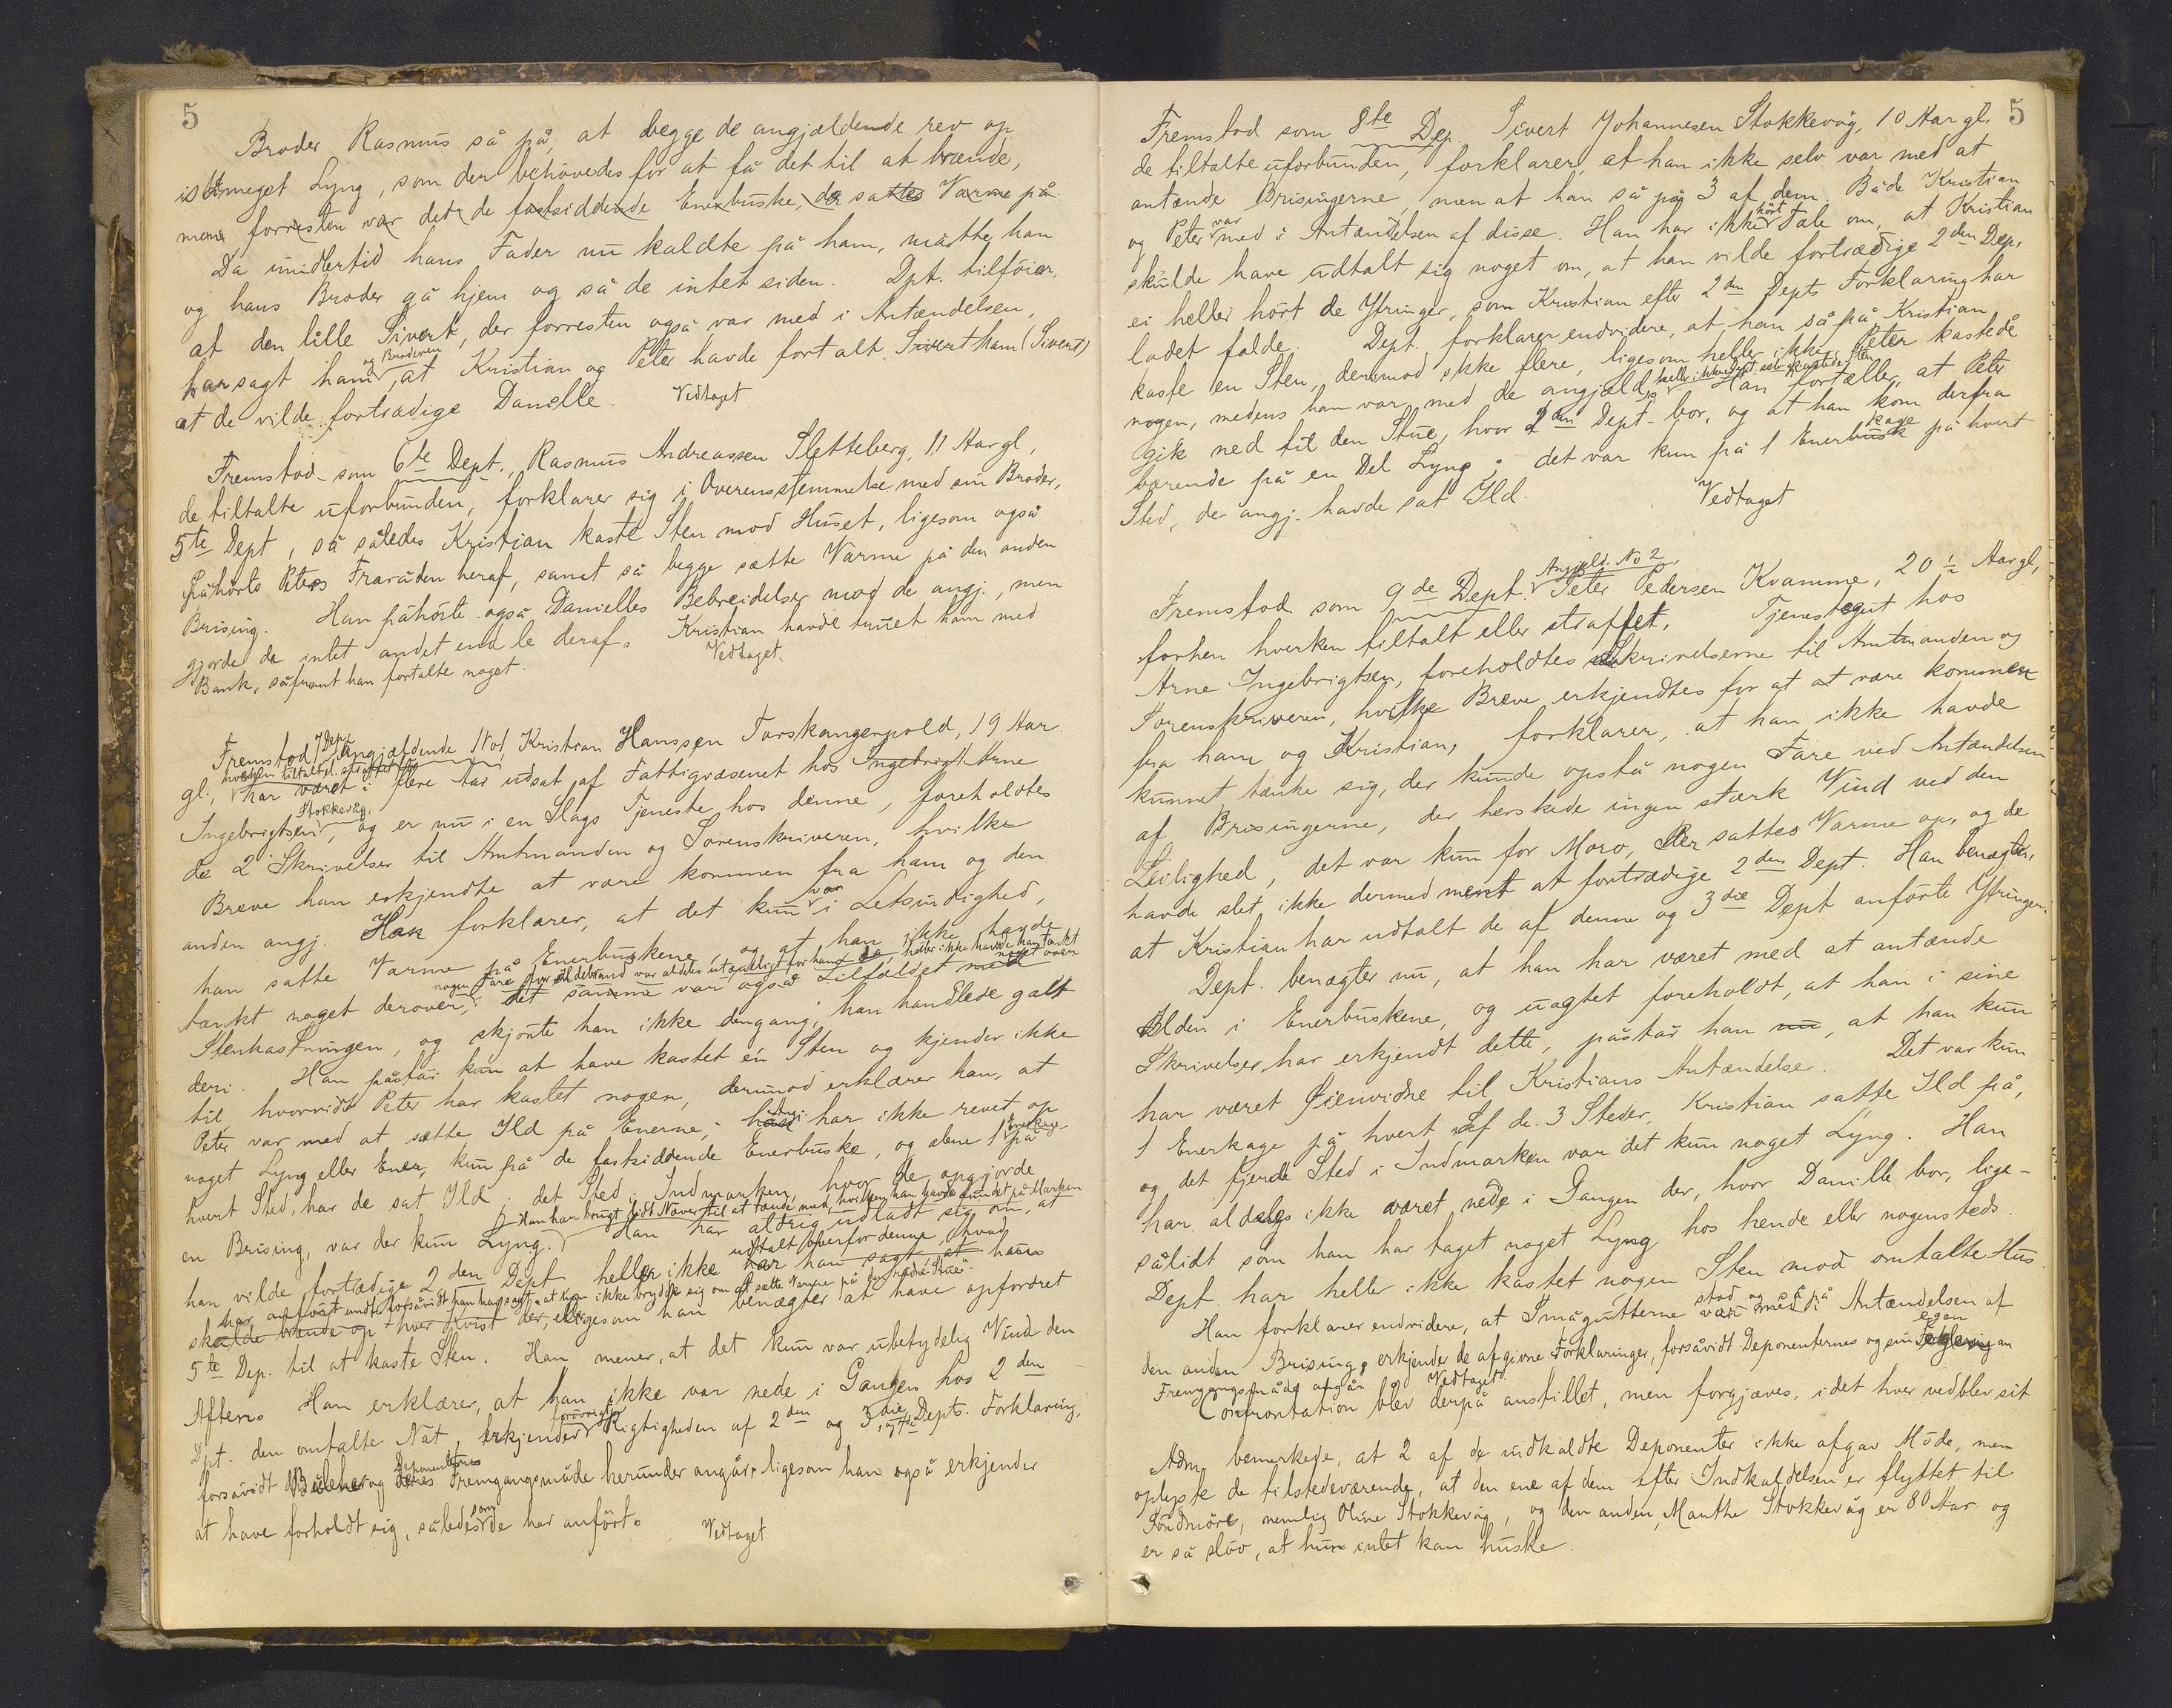 5
Broder Rasmus så på, at begge de angjældende rev op
så meget Lyng, som der behövedes for at få det til at brænde,
men forresten var det de fastsiddende Enerbuske, der sattes Varme på.
Da imidlertid hans Fader nu kaldte på ham, måtte han
og hans Broder gå hjem og så de intet siden. Dpt. tilföier,
at den lille Sivert, der forresten også var med i Antændelsen,
har sagt ham og Broderen, at Kristian og Peter havde fortalt Sivert ham (Sivert)
at de vilde fortrædige Danielle. Vedtaget
Fremstod som 6te Dept., Rasmus Andreassen Sletteberg, 11 Aar gl,
de tiltalte uforbunden, forklarer sig i Overensstemmelse med sin Broder,
5te Dept, så således Kristian kaste Sten mod Huset, ligesom også
påhörte Peters Fraråden heraf, samt så begge sætte Varme på den anden
Brising. Han påhörte også Danielles Bebreidelser mod de angj., men
gjorde de intet andet end le deraf. Kristian havde truet ham med
Bank, såfremt han fortalte noget. Vedtaget.
Fremstod 7 Dept angjældende No 1 Kristian Hanssen Torskangerpold, 19 Aar
gl., hverken tiltalt el. straffet för har været i flere Aar udsat af Fattigvæsenet hos Ingebrigt Arne
Ingebrigtsen Stokkevåg, og er nu i en Slags Tjeneste hos denne, foreholdtes
de 2 Skrivelser til Amtmanden og Sorenskriveren, hvilke
Breve han erkjendte at være kommen fra ham og den
anden angj. Han forklarer, at det kun var i Letsindighed,
han satte Varme på Enerbuskene, og at han ikke havde
tænkt noget derover, nogen Fare for Ildebrand var aldeles utænkeligt for ham da, heller ikke havde han tænkt noget over
det samme var også Tilfældet med
Stenkastningen, og skjönte han ikke dengang, han handlede galt
deri. Han påstår kun at have kastet én Sten og kjender ikke
til, hvorvidt Peter har kastet nogen, derimod erklærer han, at
Peter var med at sætte Ild på Enerne; han de angj. har ikke revet op
noget Lyng eller Ener, kun på de fastsiddende Enerbuske, og alene 1 Enerkage på
hvert Sted, har de sat Ild; det Sted i Indmarken, hvor de opgjorde
en Brising, var der kun Lyng. Han har brugt lidt Næver til at tænde med, hvilken han havde fundet på Marken
Han har aldrig udladt sig om, at
han vilde fortrædige 2den Dept heller ikke udtalt overfor denne, hvad har han sagt, at hun
har anfört undt. forsåvidt han har sagt, at han ikke brydde sig om at sætte Varme på den röde Stue".
skulde brænde op hver Kvist der, ligesom han benægter at have opfordret
5te Dep. til at kaste Sten. Han mener, at det kun var ubetydelig Vind den
Aften. Han erklærer, at han ikke var nede i Gangen hos 2den
Dpt. den omtalte Nat, erkjender forövrigt Rigtigheden af 2den og 3die, og 4de Depts. Forklaring,
forsåvidt Bålene og deres Deponenternes Fremgangsmåde herunder angår, ligesom han også erkjender
at have forholdt sig, således som de har anfört. Vedtaget
5
Fremstod som 8te Dep. Sivert Johannesen Stokkevåg, 10 Aar gl.
de tiltalte uforbunden, forklarer, at han ikke selv var med at
antænde Brisingerne, men at han så på 3 af dem. Både Kristian
og Peter var med i Antændelsen af disse. Han har ikke hört Tale om, at Kristian
skulde have udtalt sig noget om, at han vilde fortrædige 2den Dep,
ei heller hört de Ytringer, som Kristian efter 2den Depts Forklaring har
ladet falde. Dept. forklarer endvidere, at han så på Kristian
kaste en Sten, derimod ikke flere, ligesom heller ikke Peter kastede
nogen, medens han var med de angjæld., heller ikke Dept. selv kastede Sten Han fortæller, at Peter
gik ned til den Stue, hvor 2den Dept. bor, og at han kom derfra
bærende på en Del Lyng; det var kun på 1 Enerbusk kage på hvert
Sted, de angj. havde sat Ild. Vedtaget
Fremstod som 9de Dept. Angjæld. No 2, Peter Pedersen Kvamme, 20 ½ Aar gl,
forhen hverken tiltalt eller straffet, Tjenestegut hos
Arne Ingebrigtsen, foreholdtes Skrivelserne til Amtmanden og
Sorenskriveren, hvilke Breve erkjendtes for at at være kommen
fra ham og Kristian, forklarer, at han ikke havde
kunnet tænke sig, der kunde opstå nogen Fare ved Antændelsen
af Brisingerne, der herskede ingen stærk Vind ved den
Leilighed, det var kun for Moro, der sattes Varme op, og de
havde slet ikke dermed ment at fortrædige 2den Dept. Han benægter,
at Kristian har udtalt de af denne og 3die Dept anförte Ytringer.
Dept. benægter nu, at han har været med at antænde
Ilden i Enerbuskene, og uagtet foreholdt, at han i sine
Skrivelser har erkjendt dette, påstår han nu, at han kun
har været Öienvidne til Kristians Antændelse. Det var kun
1 Enerkage på hvert af de 3 Steder, Kristian satte Ild på,
og det fjerde Sted i Indmarken var det kun noget Lyng. Han
har aldeles ikke været nede i Gangen der, hvor Danielle bor, lige-
sålidt som han har taget noget Lyng hos hende eller nogensteds.
Dept. har heller ikke kastet nogen Sten mod omtalte Hus
Han forklarer endvidere, at Smågutterne var med i stod og så på Antændelsen af
den anden Brising, erkjender de afgivne Forklaringer, forsåvidt Deponenternes og sin egen
Fremgangsmåde angår. Vedtaget
Confrontation blev derpå anstillet, men forgjæves, idet hver vedblev sit
Adm. bemærkede, at 2 af de indkaldte Deponenter ikke afgav Möde, men
oplyste de tilstedeværende, at den ene af dem efter Indkaldelsen er flyttet til
Söndmöre, nemlig Oline Stokkevåg, og den anden, Manthe Stokkevåg er 80 Aar og
er så slöv, at hun intet kan huske.